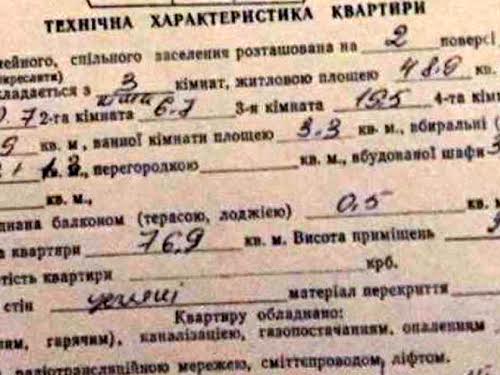 ТЕХНІЧНА ХАРАКТЕРИСТИКА КВАРТИРИ
нейного, спільного заселення розташована на 2 поверсі
креслити)
кладається з 3 кімнат, житловою площею 48.9 кв.
7 2-га кімната 6.7 3-я кімната 19.5 4-та кім
9 кв. м, ванної кімнати площею 3.3 кв. м., вбиральні (
кв. м., перегородкою кв. м., вбудованої шафи 3
кв. м.,
днана балконом (терасою, лоджією) 0,5 кв. м
а квартири 76,9 кв. м. Висота приміщень
тість квартири крб.
стін матеріал перекриття
Квартиру обладнано:
ним, гарячим), каналізацією, газопостачанням, опаленням
радіотрансляційною мережею, сміттєпроводом, ліфтом.